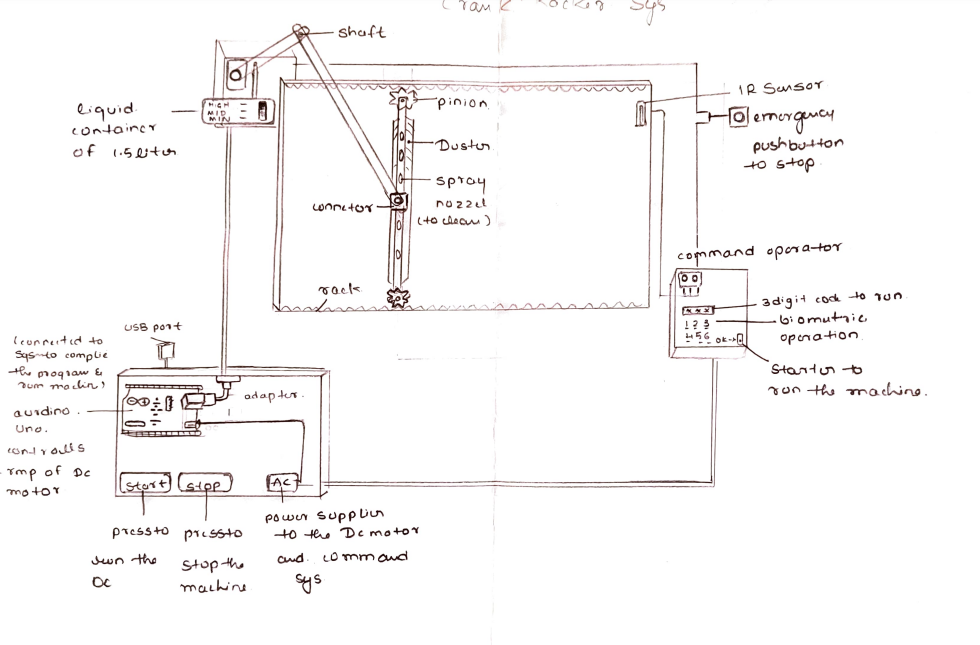 Crank Rocker Sys
shaft
liquid
container
of 1.5 liter
HIGH
MID
MIN
pinion
Duster
spray
nozzel
(to clean)
connetor
rack
IR Sensor
emergency
pushbutton
to stop.
command operator
* * *
1 2 3
4 5 6 OK→
3 digit code to run
biometric
operation
Starter to
run the machine.
USB port
(connected to
Sys to complie
the program &
rum machin)
aurdino.
Uno.
controlls
rmp of Dc
motor
adapter.
start
stop
AC
press to
run the
DC
press to
stop the
machine
power supplier
to the Dc motor
and command
sys